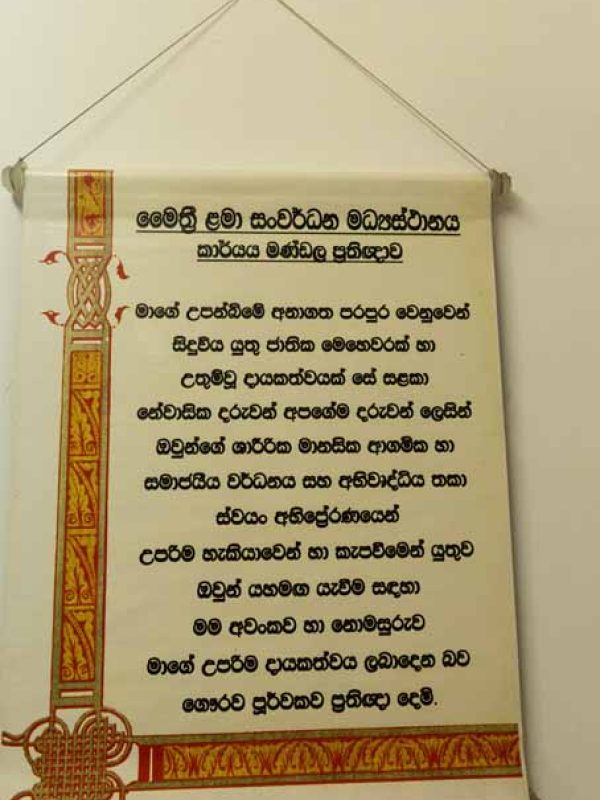 මෛත්‍රී ළමා සංවර්ධන මධ්‍යස්ථානය
කාර්යය මණ්ඩල ප්‍රතිඥාව
මාගේ උපන්බිමේ අනාගත පරපුර වෙනුවෙන්
සිදුවිය යුතු ජාතික මෙහෙවරක් හා
උතුම්වූ දායකත්වයක් සේ සළකා
නේවාසික දරුවන් අපගේම දරුවන් ලෙසින්
ඔවුන්ගේ ශාරීරික මානසික ආගමික හා
සමාජයීය වර්ධනය සහ අභිවෘද්ධිය තකා
ස්වයං අභිප්‍රේරණයෙන්
උපරිම හැකියාවෙන් හා කැපවීමෙන් යුතුව
ඔවුන් යහමඟ යැවීම සඳහා
මම අවංකව හා නොමසුරුව
මාගේ උපරිම දායකත්වය ලබාදෙන බව
ගෞරව පූර්වකව ප්‍රතිඥා දෙමි.